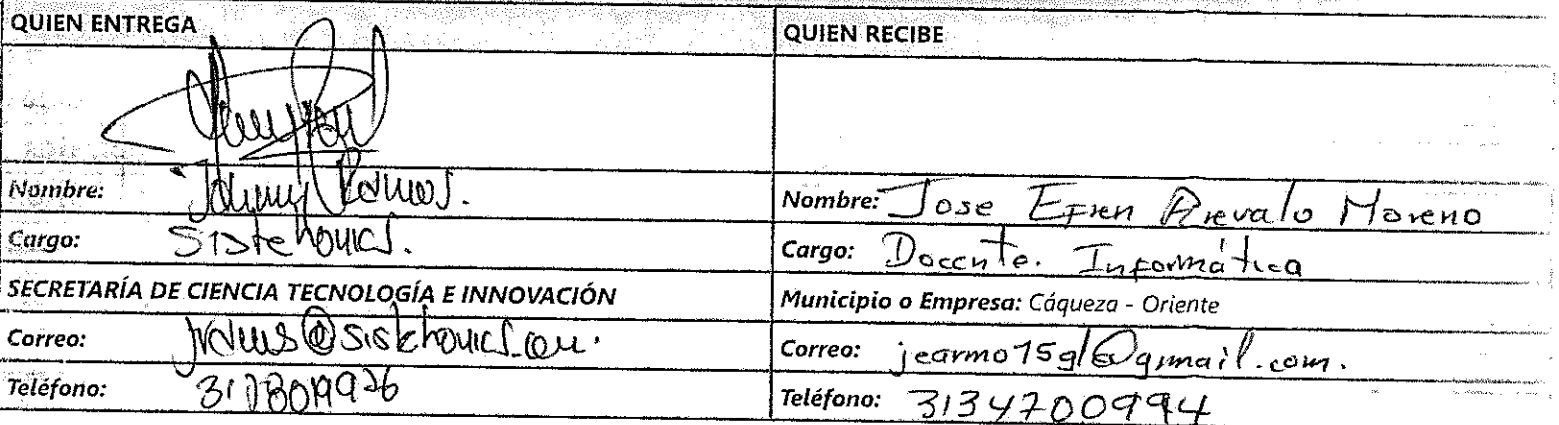 QUIEN ENTREGA
QUIEN RECIBE
Nombre: Johnny Ramos.
Nombre: Jose Efren Arevalo Moreno
Cargo: Sistetronics.
Cargo: Docente. Informática
SECRETARÍA DE CIENCIA TECNOLOGÍA E INNOVACIÓN
Municipio o Empresa: Cáqueza - Oriente
Correo:
Correo: jearmo15gl@gmail.com.
Teléfono:
Teléfono: 3134700994